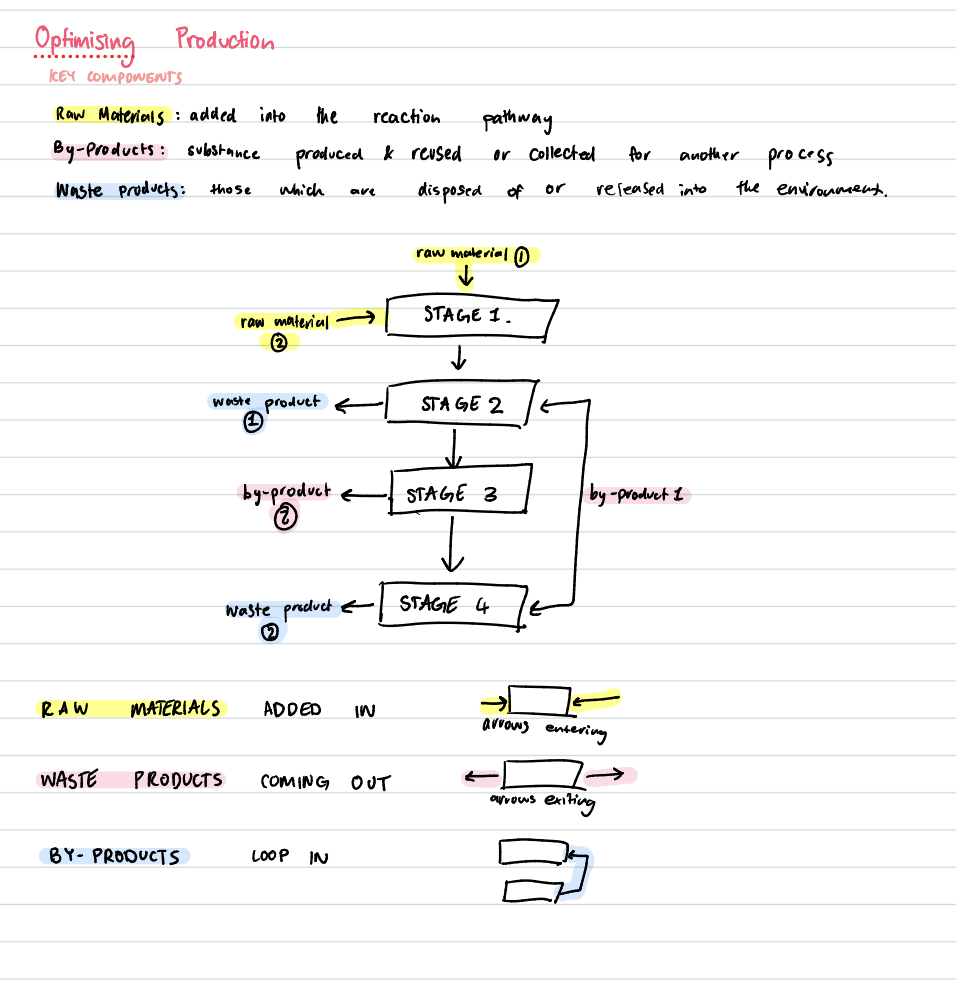 Optimising Production
KEY COMPONENTS
Raw Materials: added into the reaction pathway
By-Products: substance produced & reused or collected for another process
Waste products: those which are disposed of or released into the environment.
raw material ①
STAGE 1.
raw material
②
STAGE 2
waste product
①
STAGE 3
by-product
②
by-product 1
STAGE 4
waste product
②
RAW MATERIALS ADDED IN
arrows entering
WASTE PRODUCTS COMING OUT
arrows exiting
BY-PRODUCTS LOOP IN